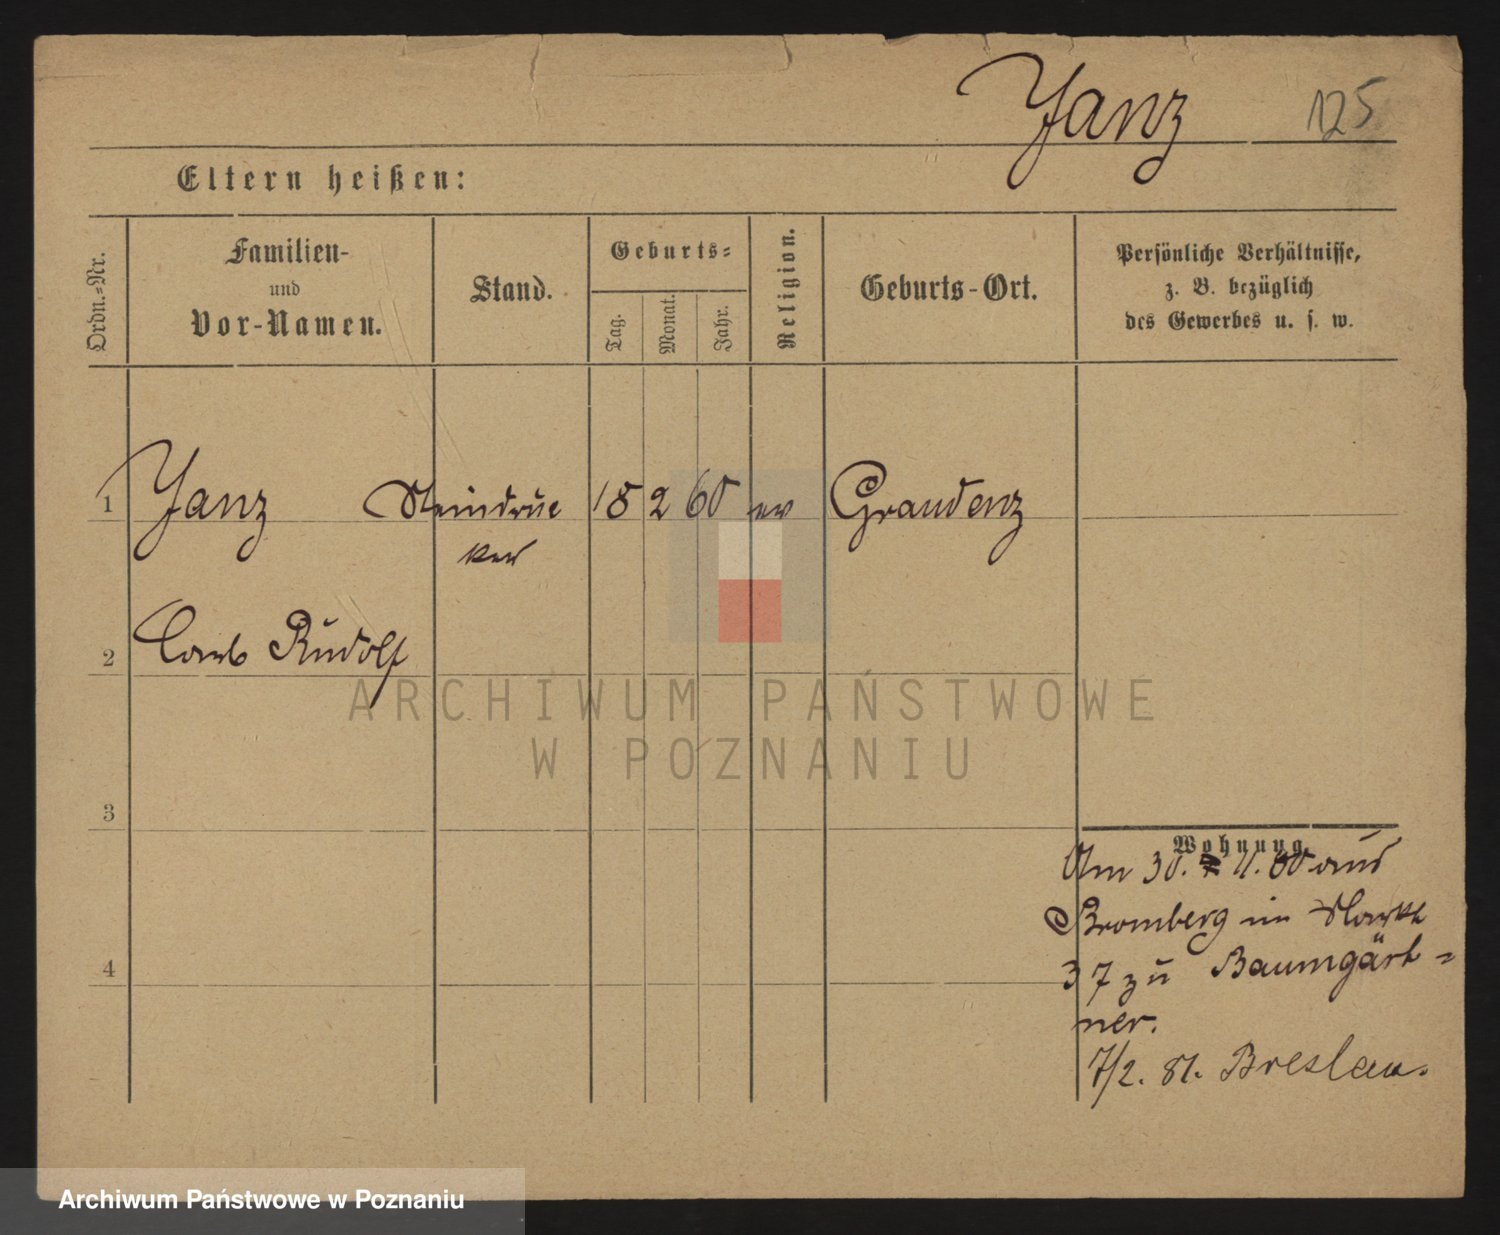 Janz 125
Eltern heißen:
Ordn.-Nr.
Familien-
und
Vor-Namen.
Stand.
Geburts-
Tag.
Monat.
Jahr.
Religion.
Geburts-Ort.
Persönliche Verhältnisse,
z. B. bezüglich
des Gewerbes u. s. w.
1 Janz Steindruc 18 2 60 ev Graudenz
ker
2 Carl Rudolf
ARCHIWUM PAŃSTWOWE
W POZNANIU
3
Wohnung
Am 30. 11. 80 aus
Bromberg im Markt
4
37 zu Baumgärt-
ner.
7/2. 81. Breslau.
Archiwum Państwowe w Poznaniu